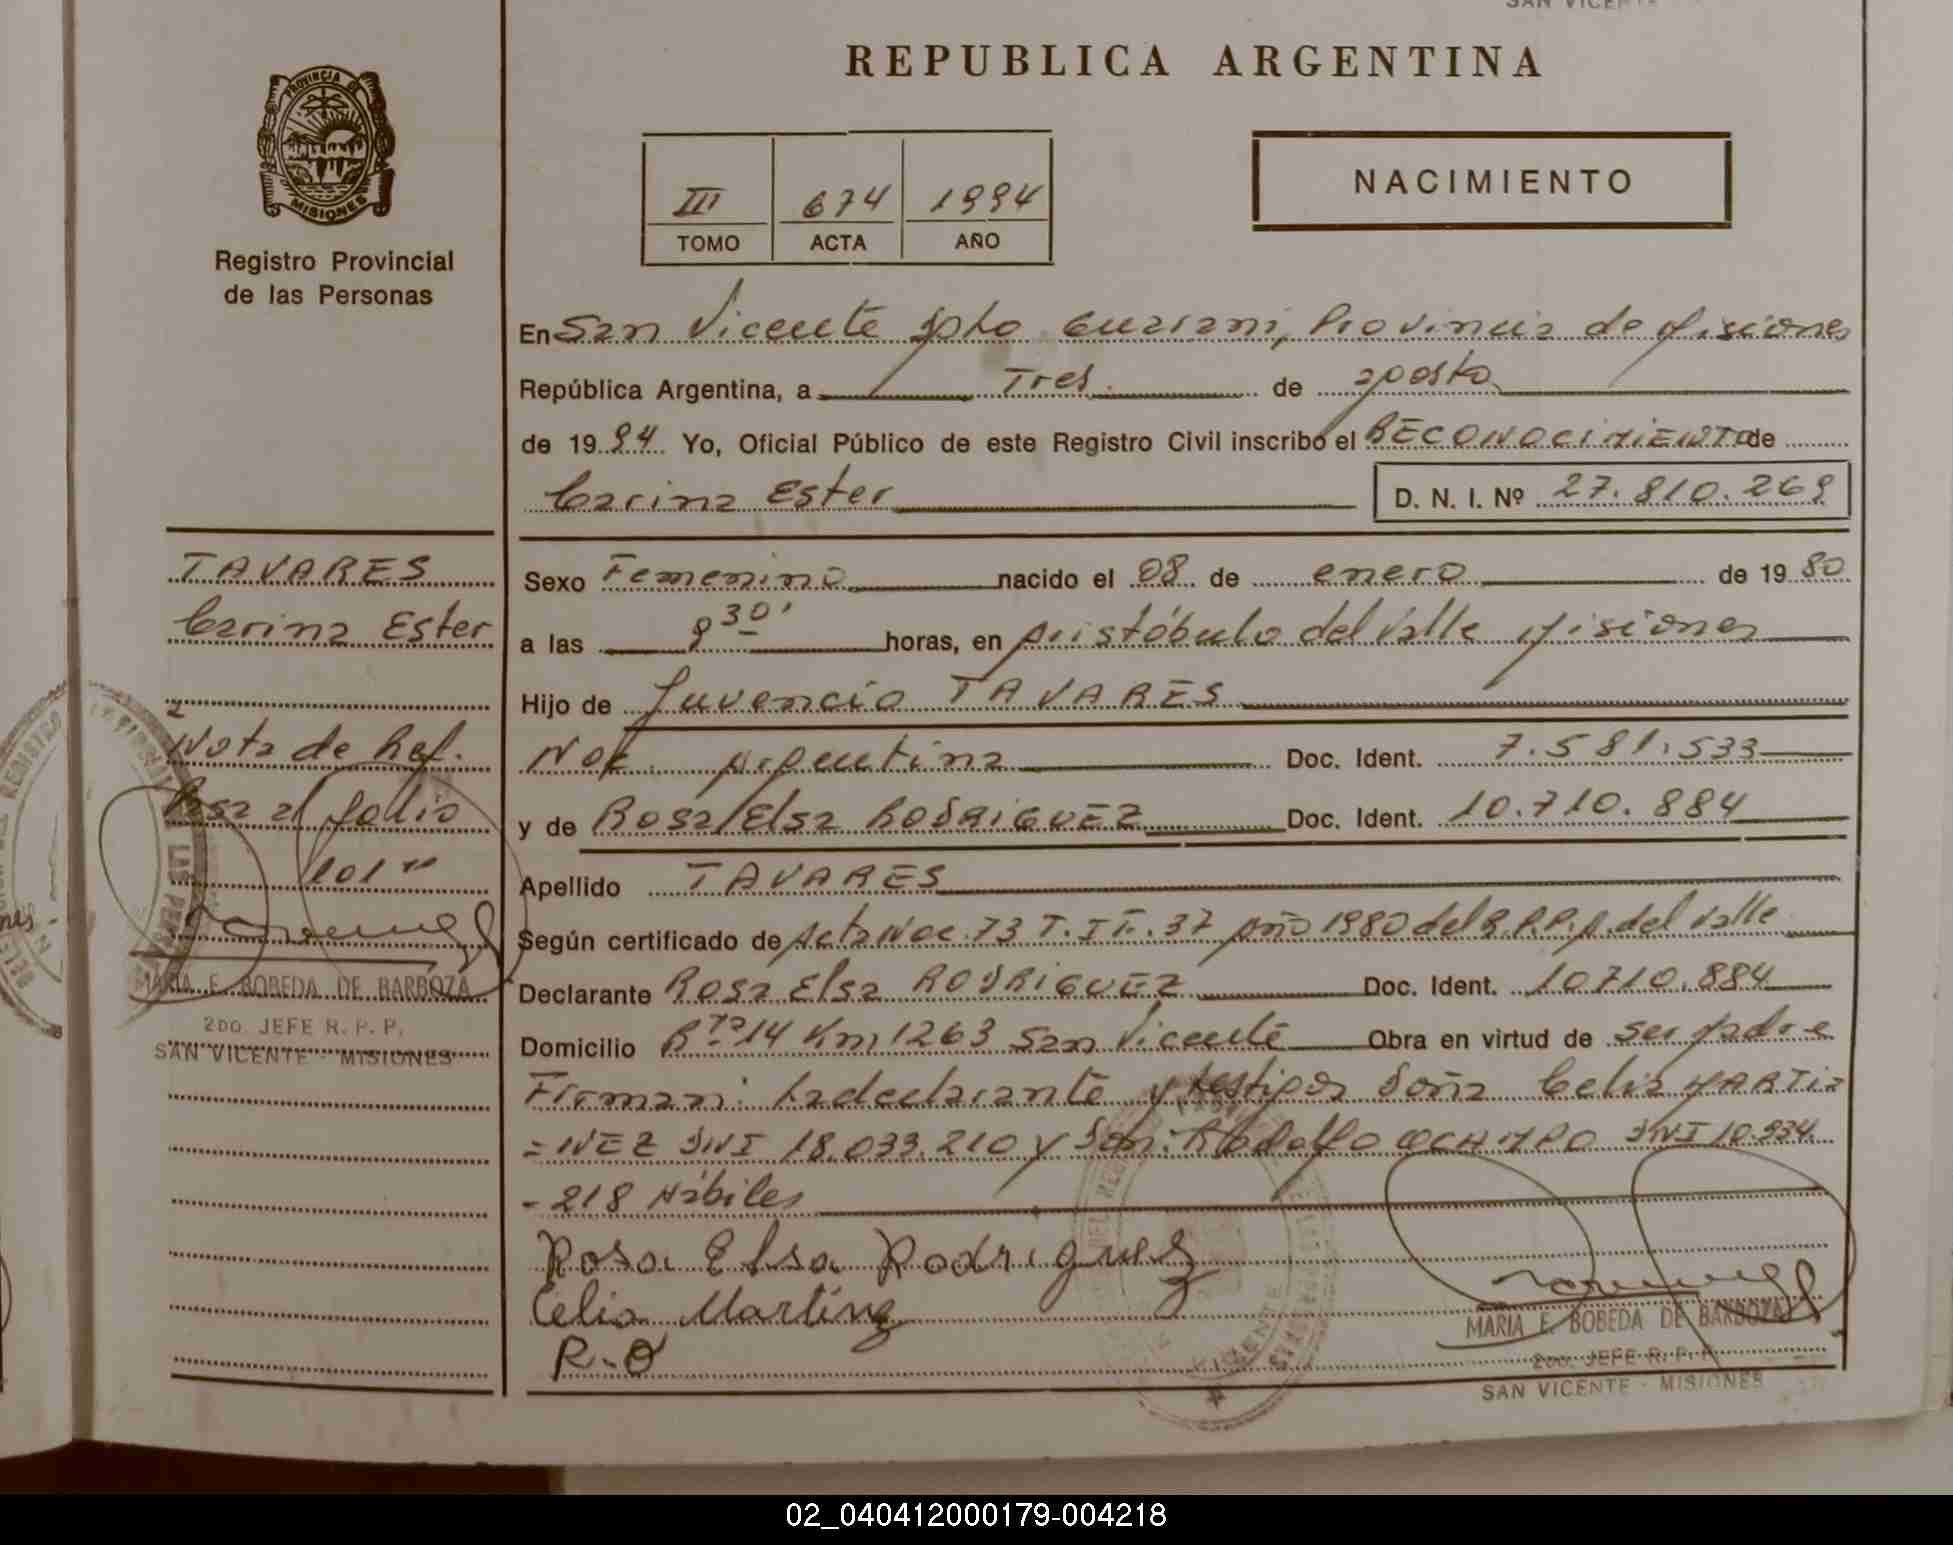 SAN VICENTE
REPUBLICA ARGENTINA
PROVINCIA DE
MISIONES
Registro Provincial
de las Personas
III 674 1994
TOMO ACTA AÑO
NACIMIENTO
En San Vicente Dpto Guaraní, Provincia de Misiones
República Argentina, a Tres de agosto
de 1994 Yo, Oficial Público de este Registro Civil inscribo el RECONOCIMIENTO de
Carina Ester D. N. I. Nº 27.810.269
TAVARES
Carina Ester
Nota de Ref.
Pasa al folio
101"
MARIA E. BOBEDA DE BARBOZA
2DO. JEFE R. P. P.
SAN VICENTE - MISIONES
Sexo Femenino nacido el 08 de enero de 1980
a las 9 30' horas, en Aristóbulo del Valle Misiones
Hijo de Juvencio TAVARES
Nac. Argentina Doc. Ident. 7.581.533
y de Rosa Elsa RODRIGUEZ Doc. Ident. 10.710.884
Apellido TAVARES
Según certificado de Acta Nac. 73 T. II F. 37 Año 1980 del R.P.P. A. del Valle
Declarante Rosa Elsa RODRIGUEZ Doc. Ident. 10710.884
Domicilio Rta 14 Km 1263 San Vicente Obra en virtud de ser madre
Firman: La declarante y testigos Doña Celia MARTI
=NEZ DNI 18.033.210 y Don: Rodolfo OCAMPO DNI 10.934
-218 Hábiles
Rosa Elsa Rodriguez
Celia Martínez
R.O
MARIA E. BOBEDA DE BARBOZA
2DO. JEFE R. P. P.
SAN VICENTE - MISIONES
02_040412000179-004218